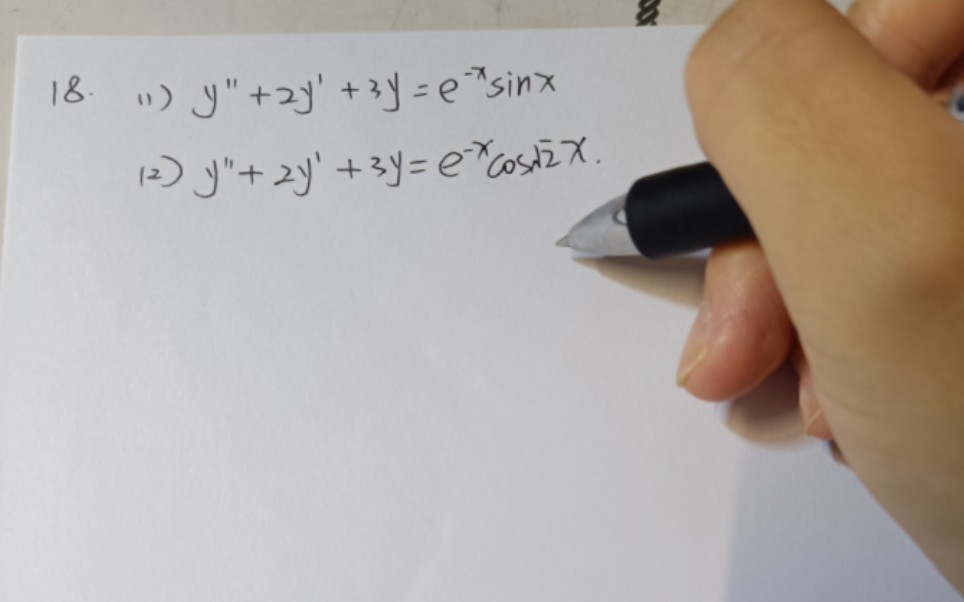 18. (1) y" + 2y' + 3y = e^{-x} sinx
(2) y" + 2y' + 3y = e^{-x} cos√2 x.